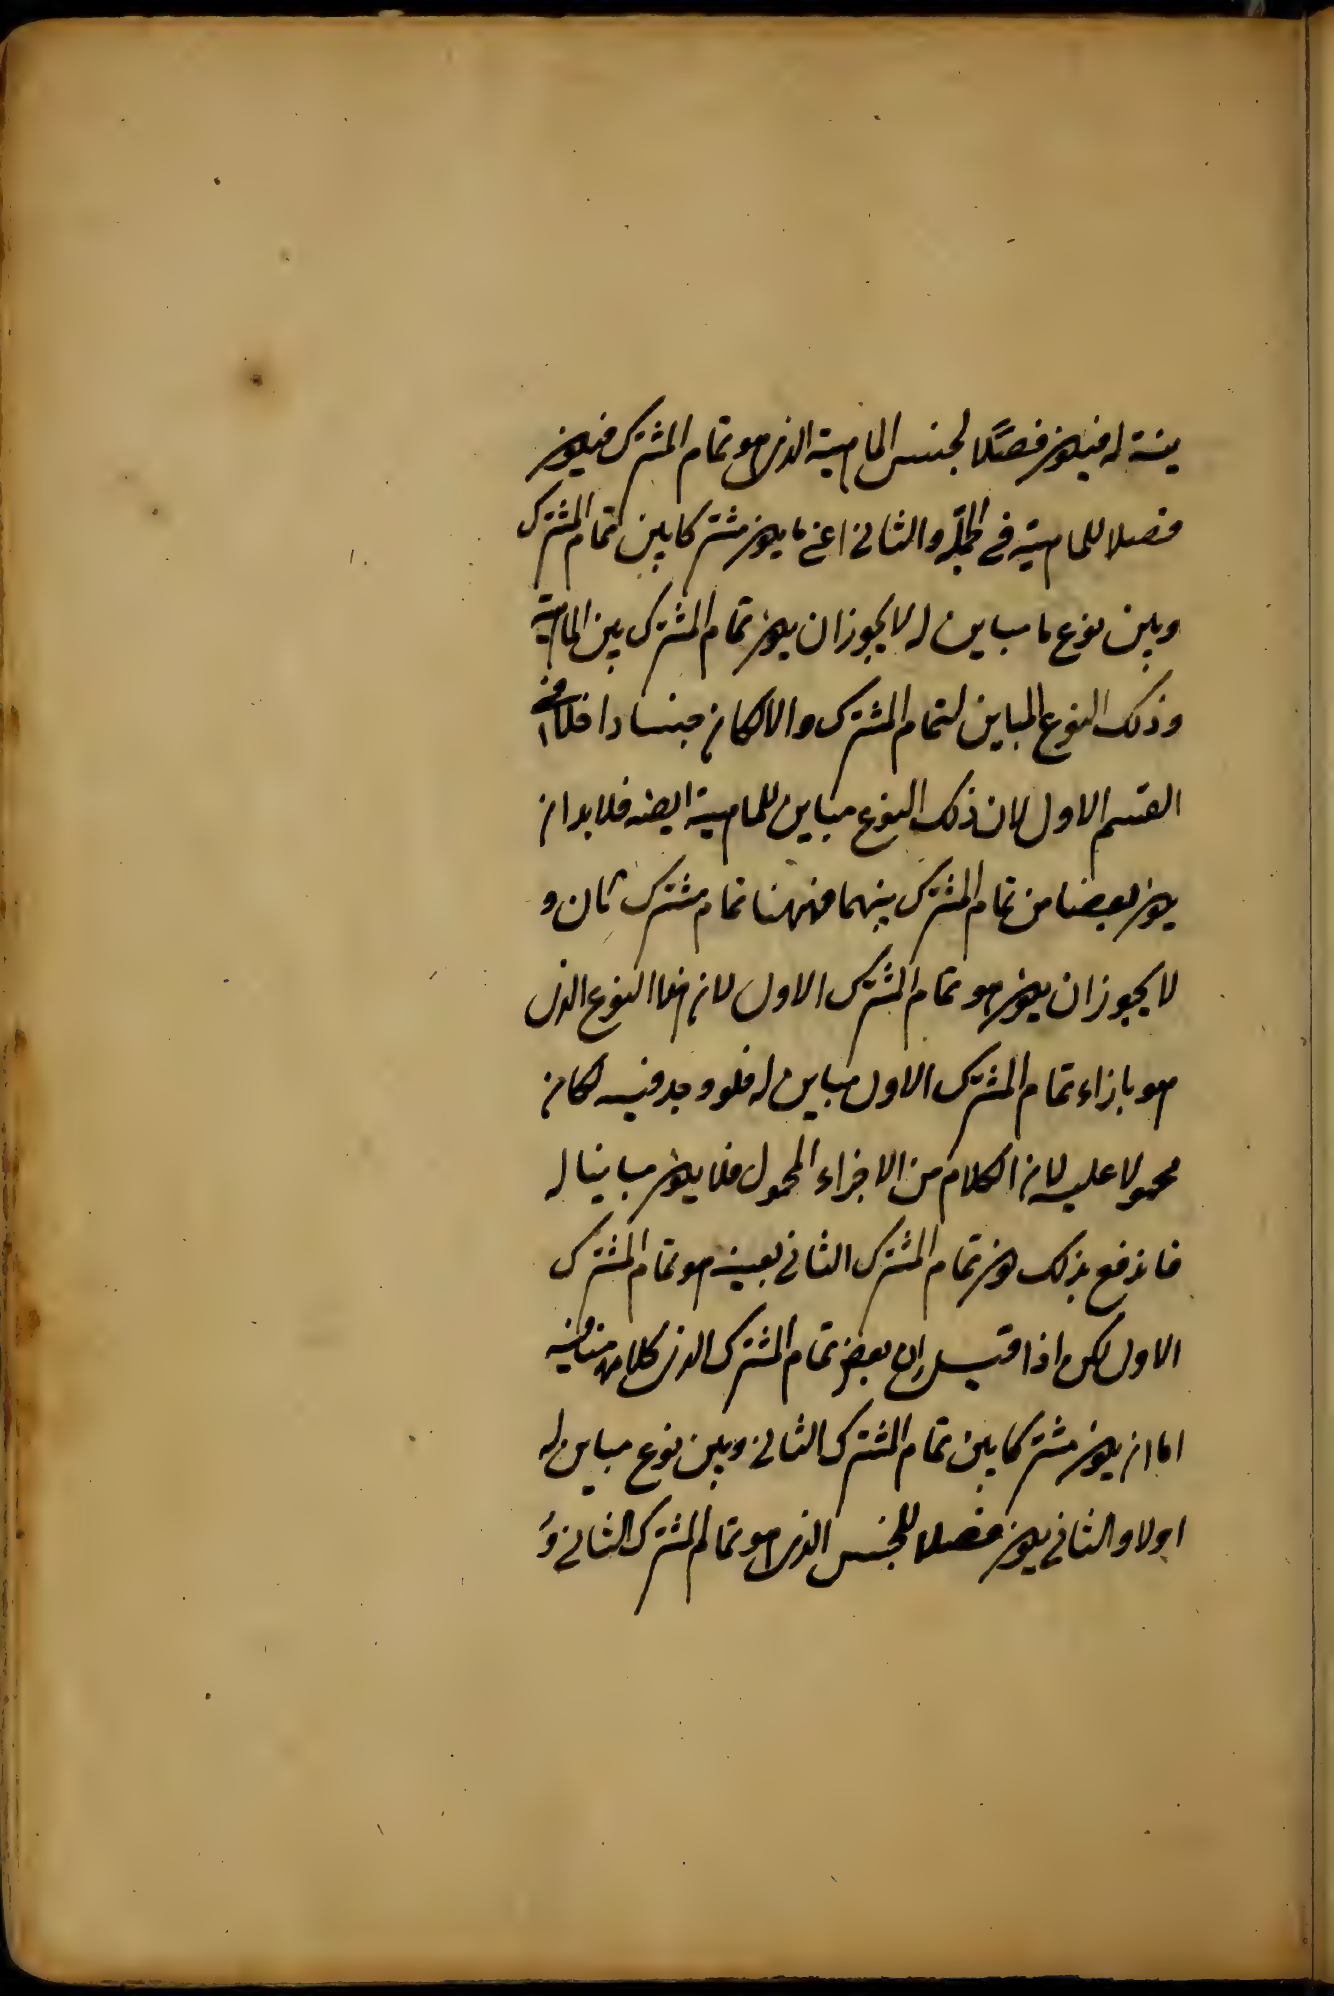 ينة له فيكون فصلًا لجنس الماهية الذى هو تمام المشترك فيكون
فصلا للماهية فى الجملة والثانى اعنى ما يكون مشتركا بين تمام المشترك
وبين نوع ما مباين له لا يجوز ان يكون تمام المشترك بين الماهية
وذلك النوع المباين لتمام المشترك والا لكان جنسا داخلا فى
القسم الاول لان ذلك النوع مباين للماهية ايضه فلا بد ان
يكون بعضا من تمام المشترك بينهما فههنا تمام مشترك ثان و
لا يجوز ان يكون هو تمام المشترك الاول لان هذا النوع الذى
هو بازاء تمام المشترك الاول مباين له فلو وجد فيه لكان
محمولا عليه لان الكلام من الاجزاء المحمول فلا يكون مباينا له
فاندفع بذلك كون تمام المشترك الثانى بعينه هو تمام المشترك
الاول لكن اذا قيل ان بعض تمام المشترك الذى كلامنا فيه
اما ان يكون مشتركا بين تمام المشترك الثانى وبين نوع مباين له
اولا والثانى يكون فصلا للجنس الذى هو تمام المشترك الثانى و